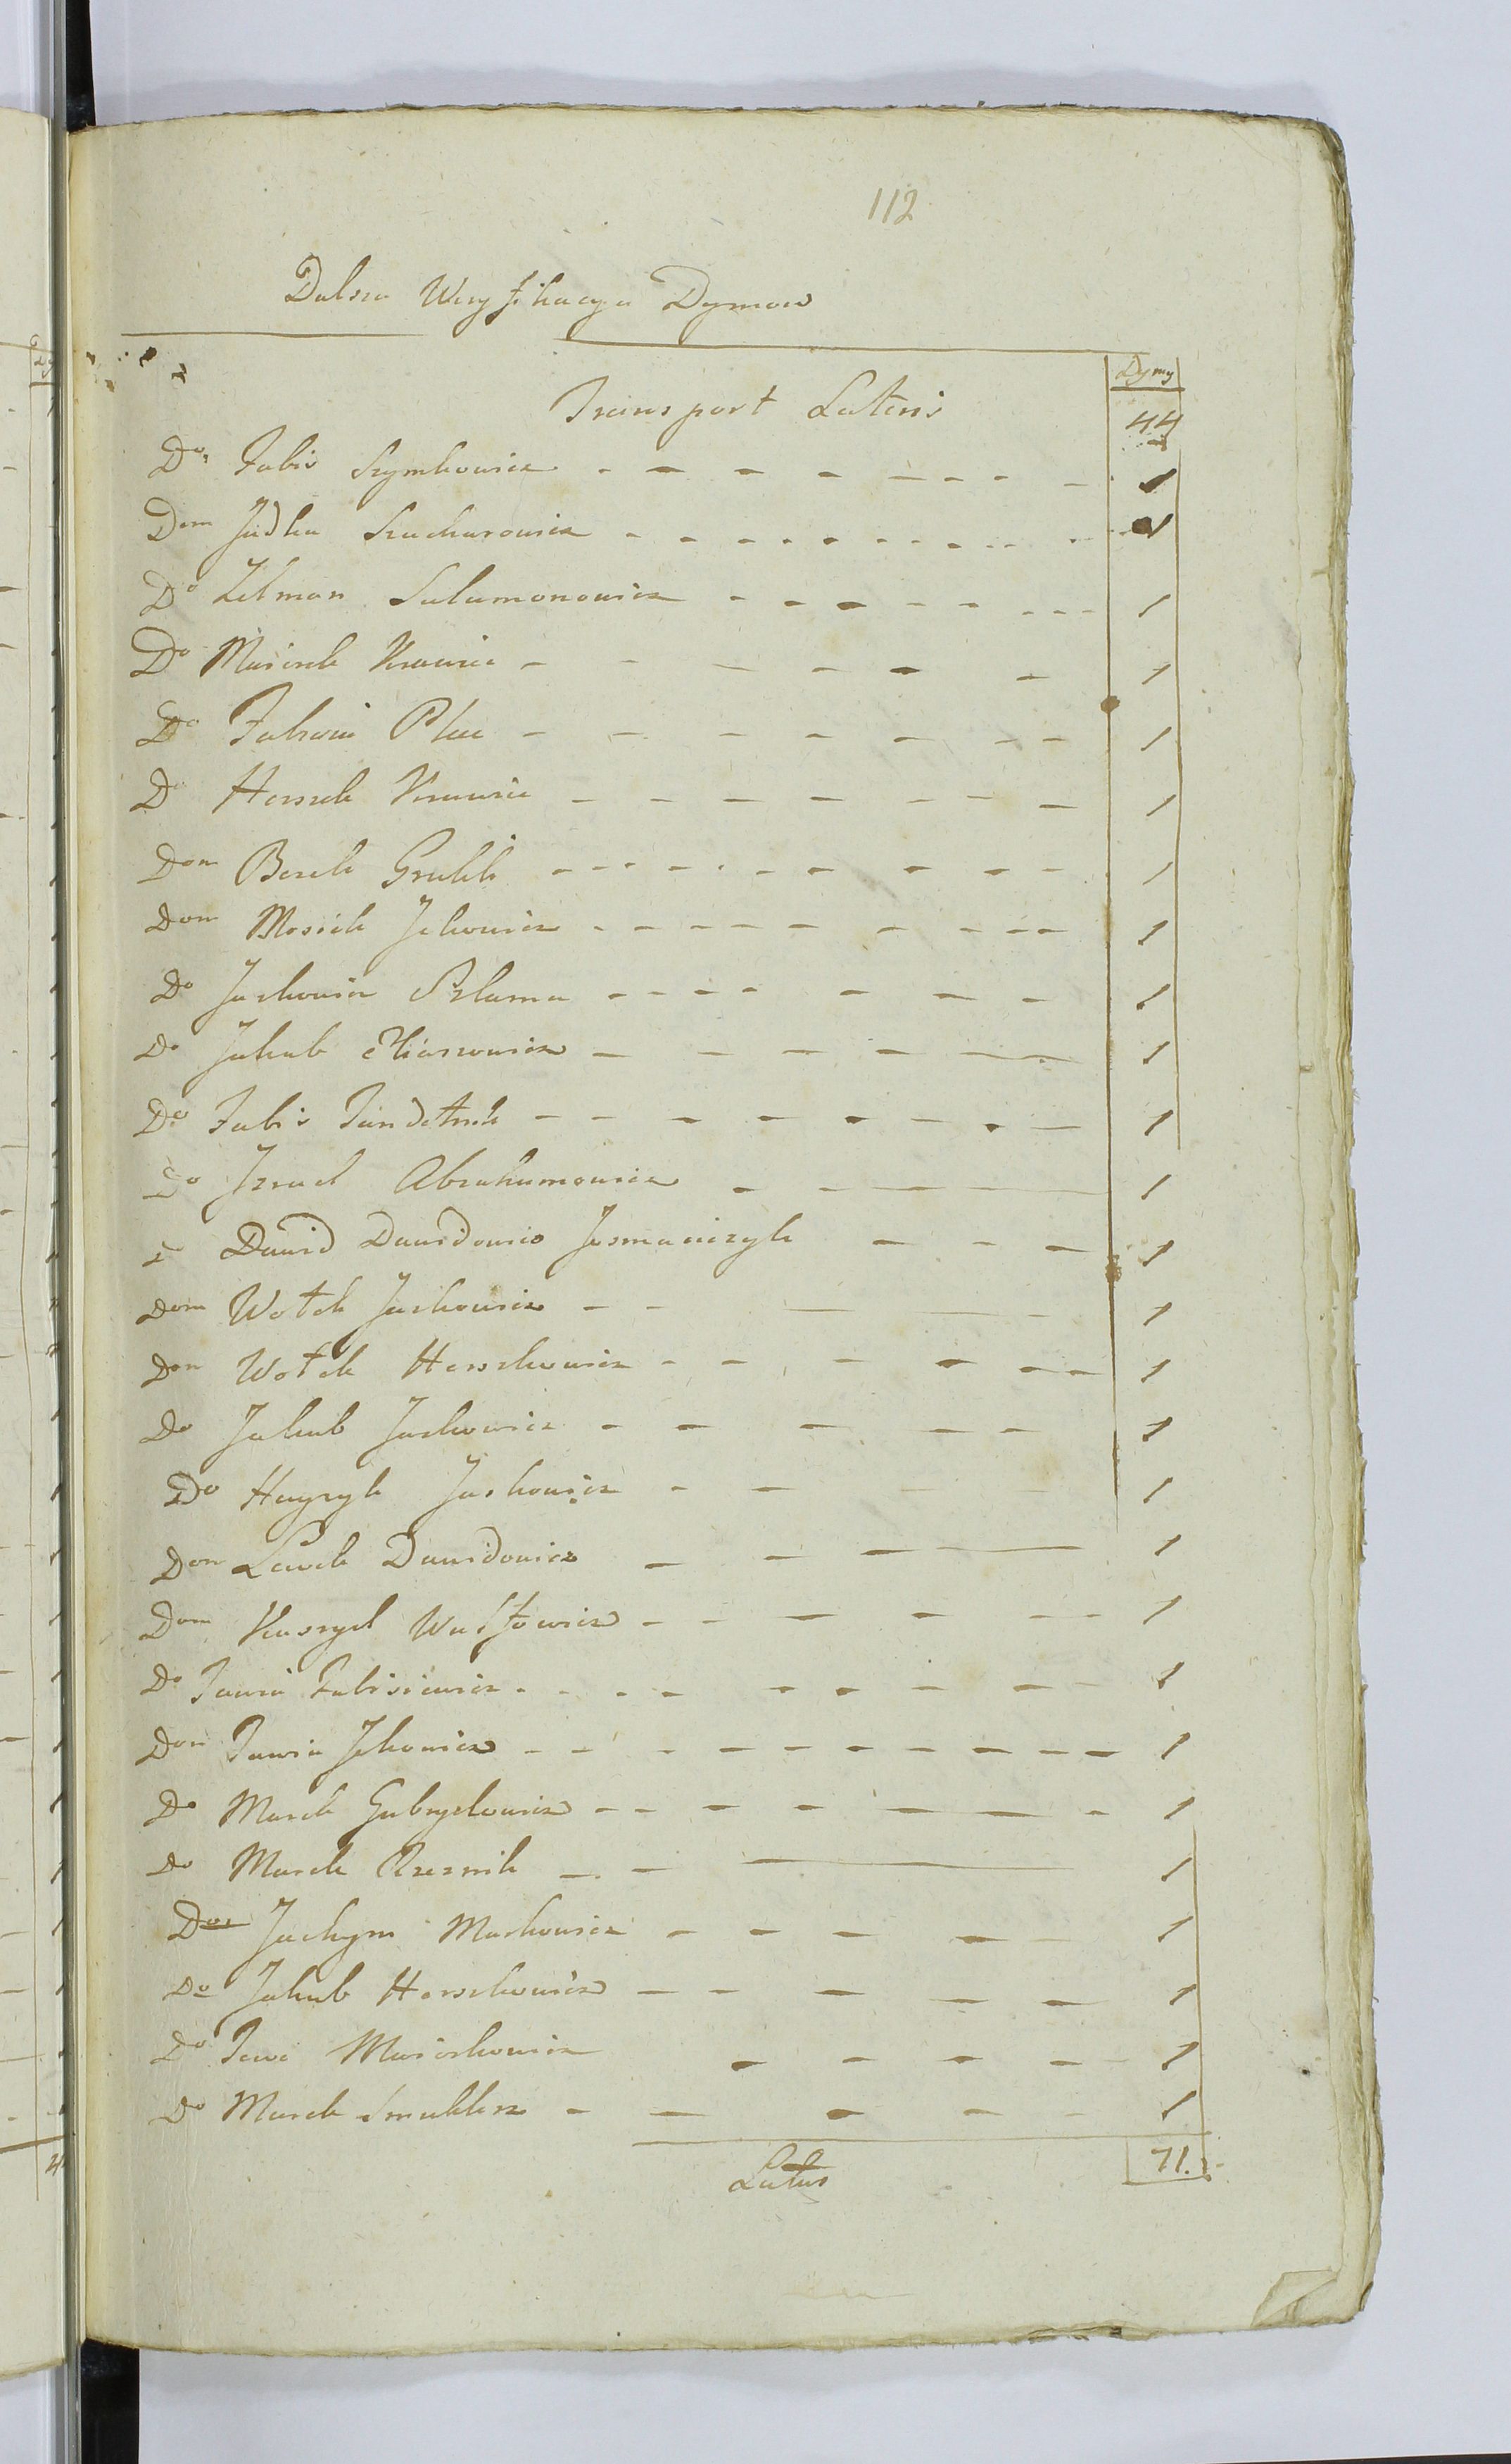 112
Dalsza Weryfikacya Dymow
Dymy
Transport Lateris 44
Do Fabis Szymkowicz 1
Dom Judka Szachurowicz 1
Do Zelman Salamonowicz 1
Do Mosiek Krawiec 1
Do Pluc 1
Do Herszek Krawiec 1
Dom Berek 1
Dom Mosiek Jckowicz 1
Do Jaskowicz Szlama 1
Do Jakub Eliaszowicz 1
Do Fabis Tandetnik 1
Do Izrael Abrahamowicz 1
Do Dawid Dawidowic 1
Dom Wolek Jaskowicz 1
Dom Wolek Herszkowicz 1
Do Jakub Jaskowicz 1
Do Jaskowicz 1
Dom Lewek Dawidowicz 1
Dom Kasryel Wulfowicz 1
Do Fabisiewicz 1
Dom Jckowicz 1
Do Marek Gabryelowicz 1
Do Marek Rzeznik 1
Dom Jachym Markowicz 1
Do Jakub Herszkowicz 1
Do Mosiorkowicz 1
Do Marek Smuklerz 1
Latus 71.